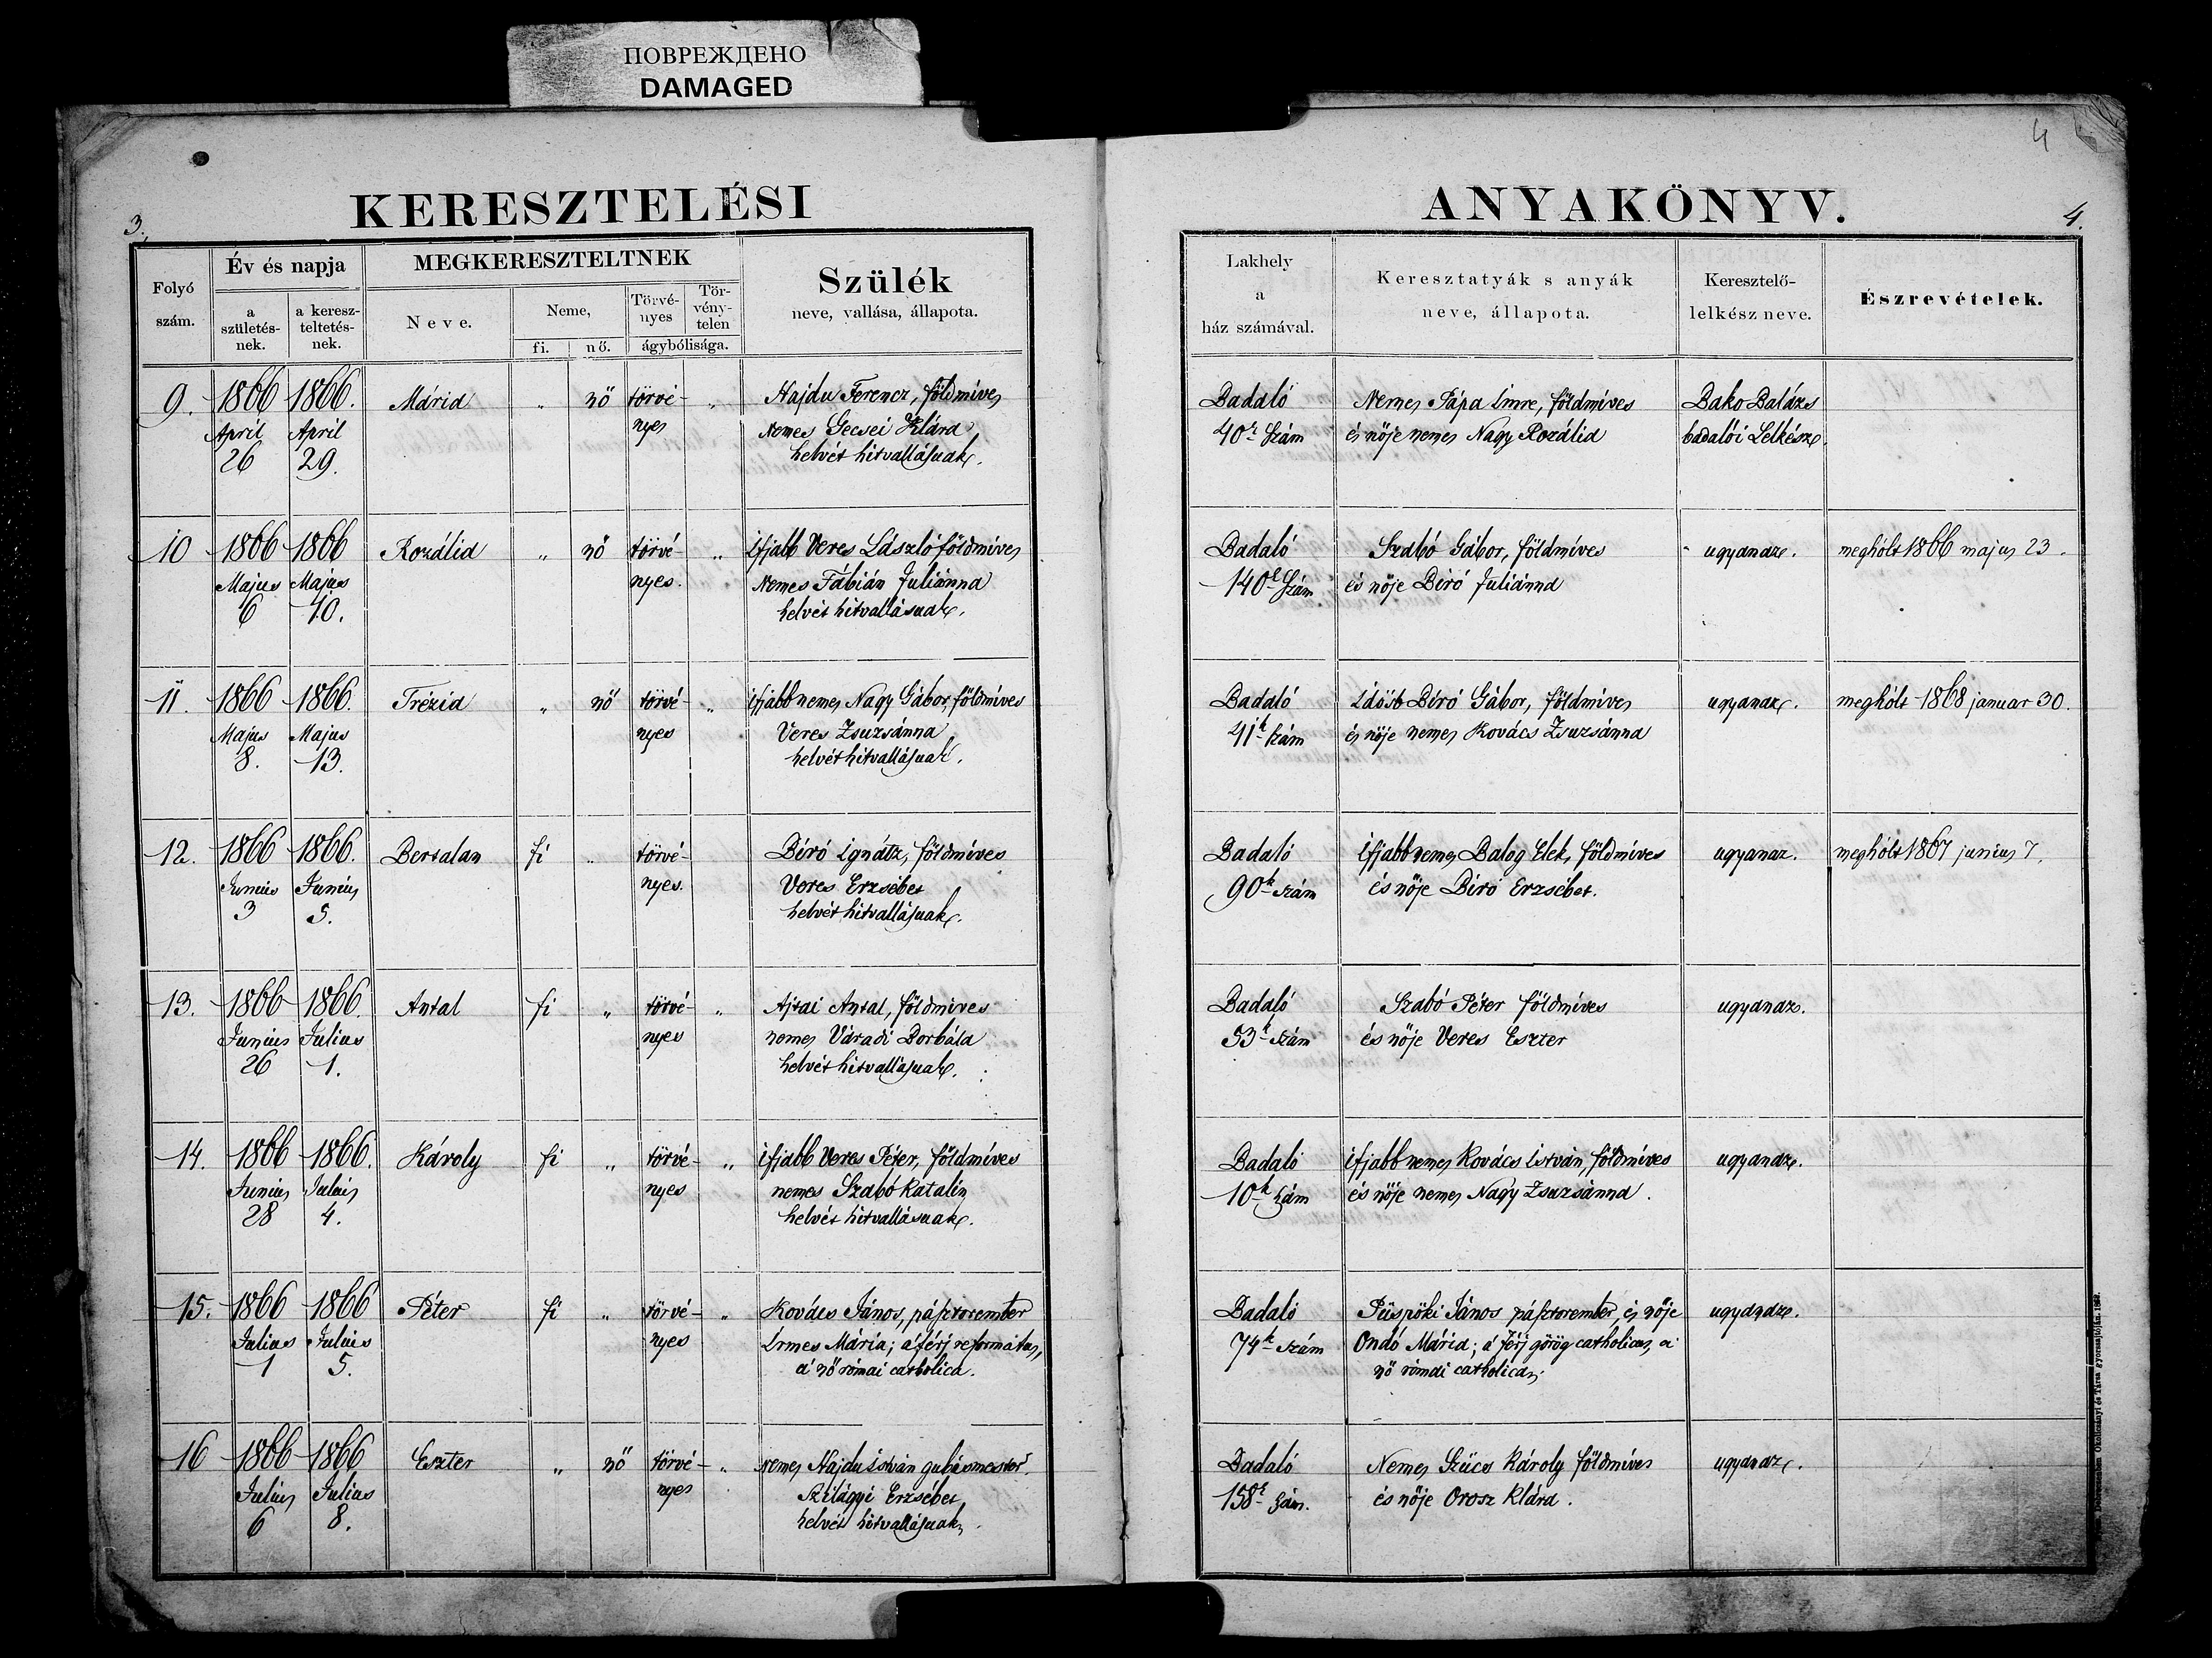 ПОВРЕЖДЕНО
DAMAGED
4
3.
KERESZTELÉSI
ANYAKÖNYV.
4.
Folyó szám.
Év és napja
a születés-nek.
a keresz-teltetés-nek.
MEGKERESZTELTNEK
Neve.
Neme,
fi.
nő.
Törvé-nyes
Tör-vény-telen
ágybólisága.
Szülék
neve, vallása, állapota.
Lakhely
a
ház számával.
Keresztatyák s anyák
neve, állapota.
Keresztelő-
lelkész neve.
Észrevételek.
9. 1866 1866. Mária „ nő törvé- „ Hajdu Ferencz, földmíves Badaló Nemes Pápa Imre, földmíves Bako Balázs
April April nyes Nemes Gecsei Klára 40k Szám és nője nemes Nagy Rozália badalói Lelkész.
26 29. helvét hitvallásuak.
10 1866 1866 Rozália „ nő törvé- „ ifjabb Veres László földmíves Badaló Szabó Gábor, földmíves ugyanaz. meghólt 1866 majus 23.
Majus Majus nyes. Nemes Fábián Juliánna 140k Szám és nője Biró Juliánna
6 10. helvét hitvallásuak.
11. 1866 1866. Trézia „ nő törvé- „ ifjabb nemes Nagy Gábor, földmíves Badaló Idősb Biró Gábor, földmíves ugyanaz. meghólt 1868 januar 30.
Majus Majus nyes Veres Zsuzsánna 41k szám és nője nemes Kovács Zsuzsánna
8. 13. helvét hitvallásuak.
12. 1866 1866. Bertalan fi „ törvé- Biró Ignátz, földmíves Badaló ifjabb nemes Balog Elek, földmíves ugyanaz. meghólt 1867 junius 7.
Junius Junius nyes. Veres Erzsébet 90k szám és nője Biró Erzsébet.
3 5. helvét hitvallásuak.
13. 1866 1866. Antal fi „ törvé- „ Ajtai Antal, földmíves Badaló Szabó Péter földmíves ugyanaz.
Junius Julius nyes nemes Váradi Borbála 53k szám és nője Veres Eszter
26 1. helvét hitvallásuak.
14. 1866 1866. Károly fi „ törvé- „ ifjabb Veres Péter, földmíves Badaló ifjabb nemes Kovács István, földmíves ugyanaz.
Junius Julius nyes nemes Szabó Katalin 10k Szám és nője nemes Nagy Zsuzsánna.
28 4. helvét hitvallásuak.
15. 1866 1866 Péter fi „ törvé- „ Kovács János, pásztorember Badaló Püspöki János pásztorember, és nője ugyanaz.
Julius Julius nyes Irmes Mária; a férj reformatus, 74k szám Ondó Mária; a férj görög catholicus, a
1 5. a nő római catholica. nő római catholica.
16 1866 1866 Eszter „ nő törvé- „ nemes Hajdu István gubásmester. Badaló Nemes Szücs Károly földmíves ugyanaz.
Julius Julius nyes Szilágyi Erzsébet 158k Szám. és nője Orosz Klára.
6 8. helvét hitvallásuak.